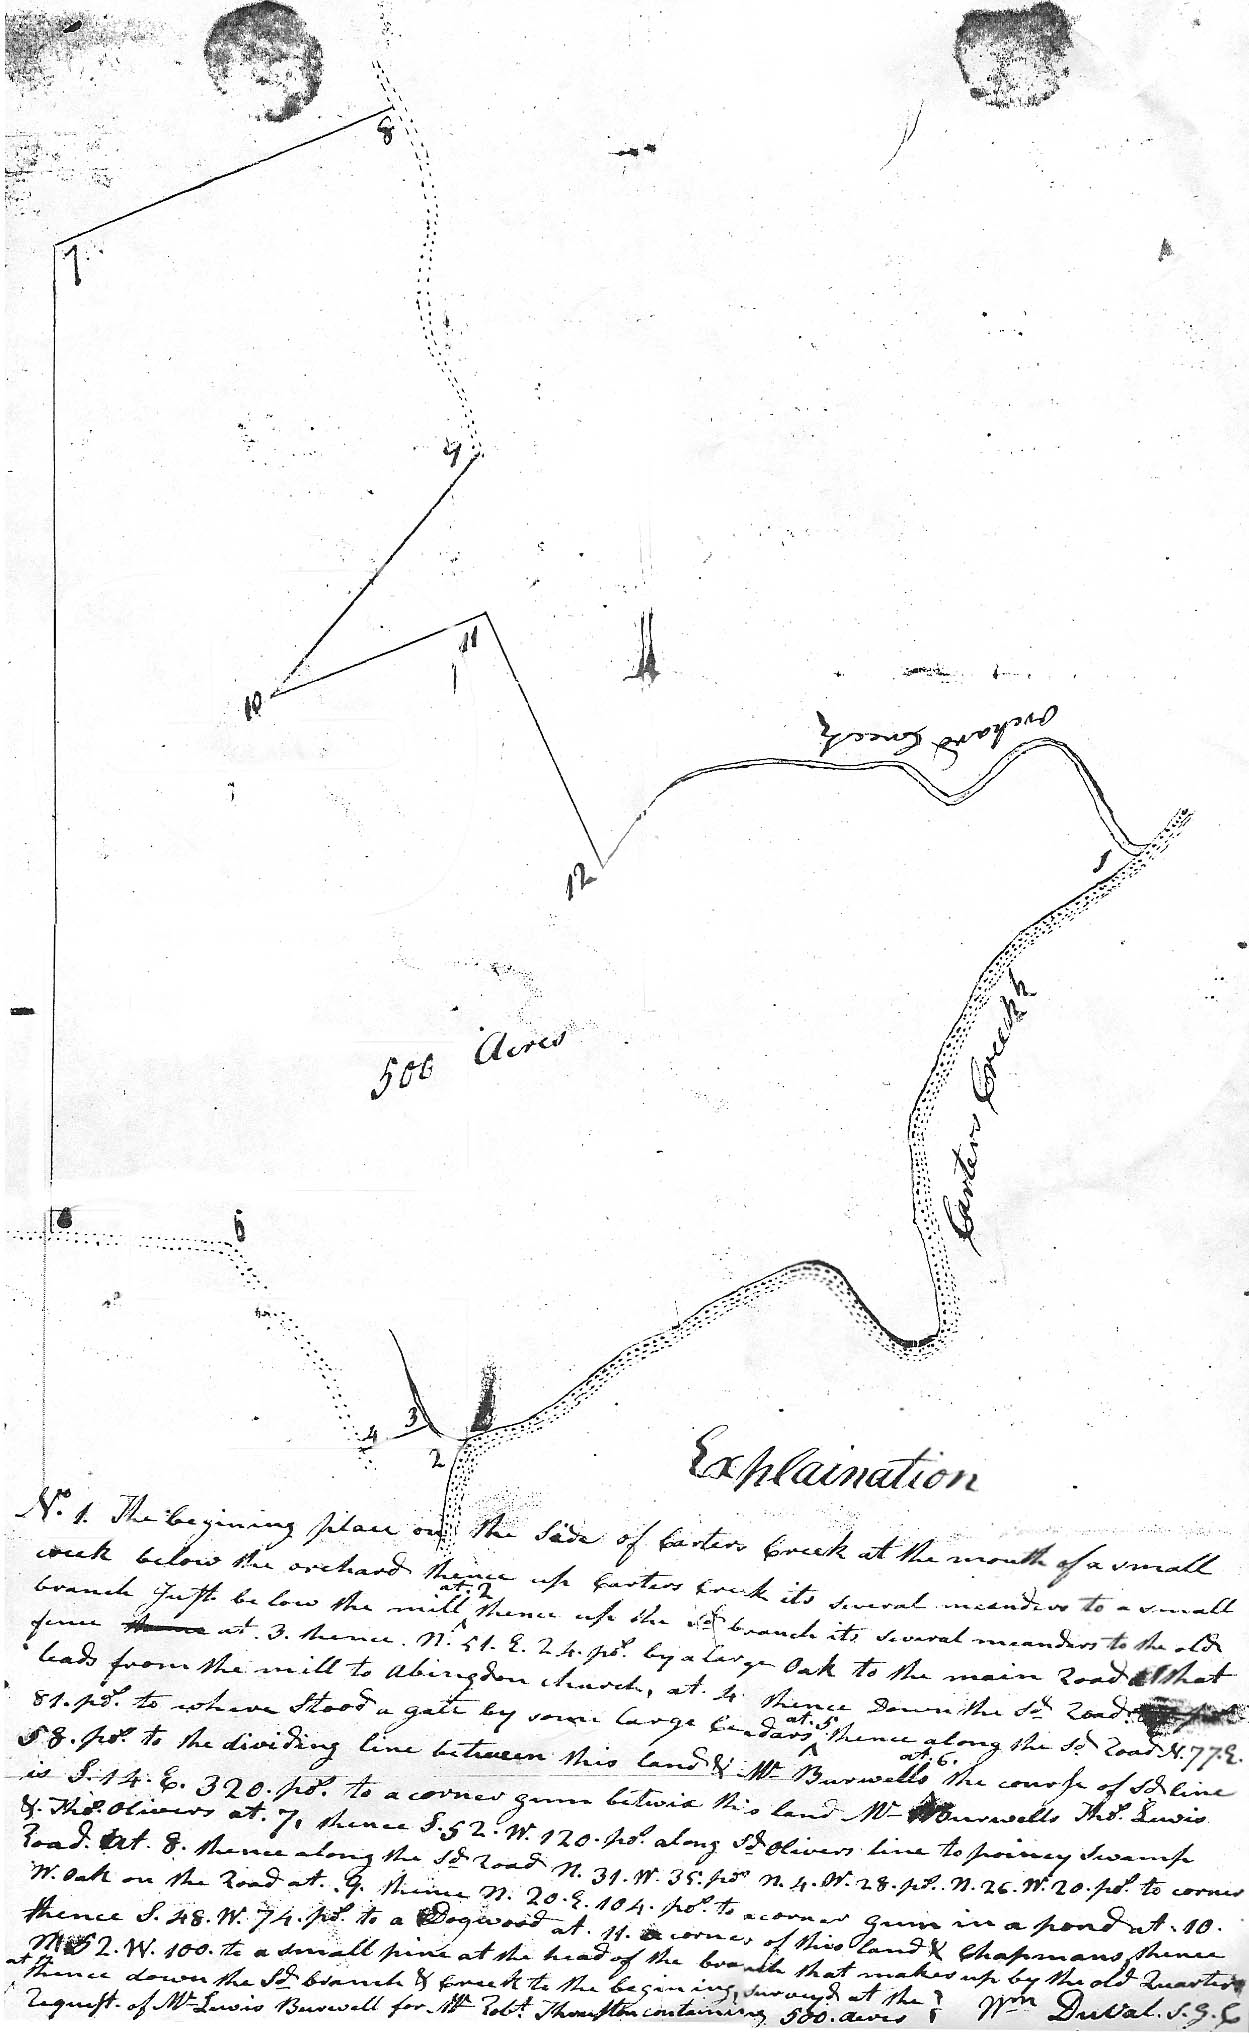 8
7
9
11
10
Orchard Creek
12
1
Carters Creek
500 Acres
6
3
4
2
Explaination
No. 1. The begining place on the side of Carters Creek at the mouth of a small
creek below the orchard thence up Carters Creek its several meanders to a small
branch Just below the mill at. 2 thence up the sd. branch its several meanders to the old
fence at. 3. thence. N. 51. E. 24. po. by a large Oak to the main Road that
leads from the mill to Abingdon church, at. 4 thence Down the sd. Road
81. po. to where Stood a gate by some large Ceadars at. 5, thence along the sd. Road N. 77. E.
58. po. to the dividing line between this land & Mr. Burwells at. 6. the course of sd. line
is S. 14. E. 320. po. to a corner gum betwix this land Mr. Burwells Tho. Lewis
& Tho. Olivers at. 7, thence S. 52. W. 120. po. along sd. Olivers line to poiney Swamp
Road. At. 8. thence along the sd. Road N. 31. W. 35. po. N. 4. W. 28. po. N. 26. W. 20. po. to corner
W. Oak on the Road at. 9. thence N. 20. E. 104. po. to a corner gum in a pond at. 10.
thence S. 48. W. 74. po. to a Dogwood at. 11. a corner of this land & Chapmans, thence
N. 52. W. 100. to a small pine at the head of the branch that makes up by the old Quarter
at thence down the sd. branch & Creek to the begining, survey'd at the
Request. of Mr. Lewis Burwell for Mr. Robt. Thruston containing 500. acres Wm Duval. S. G. C